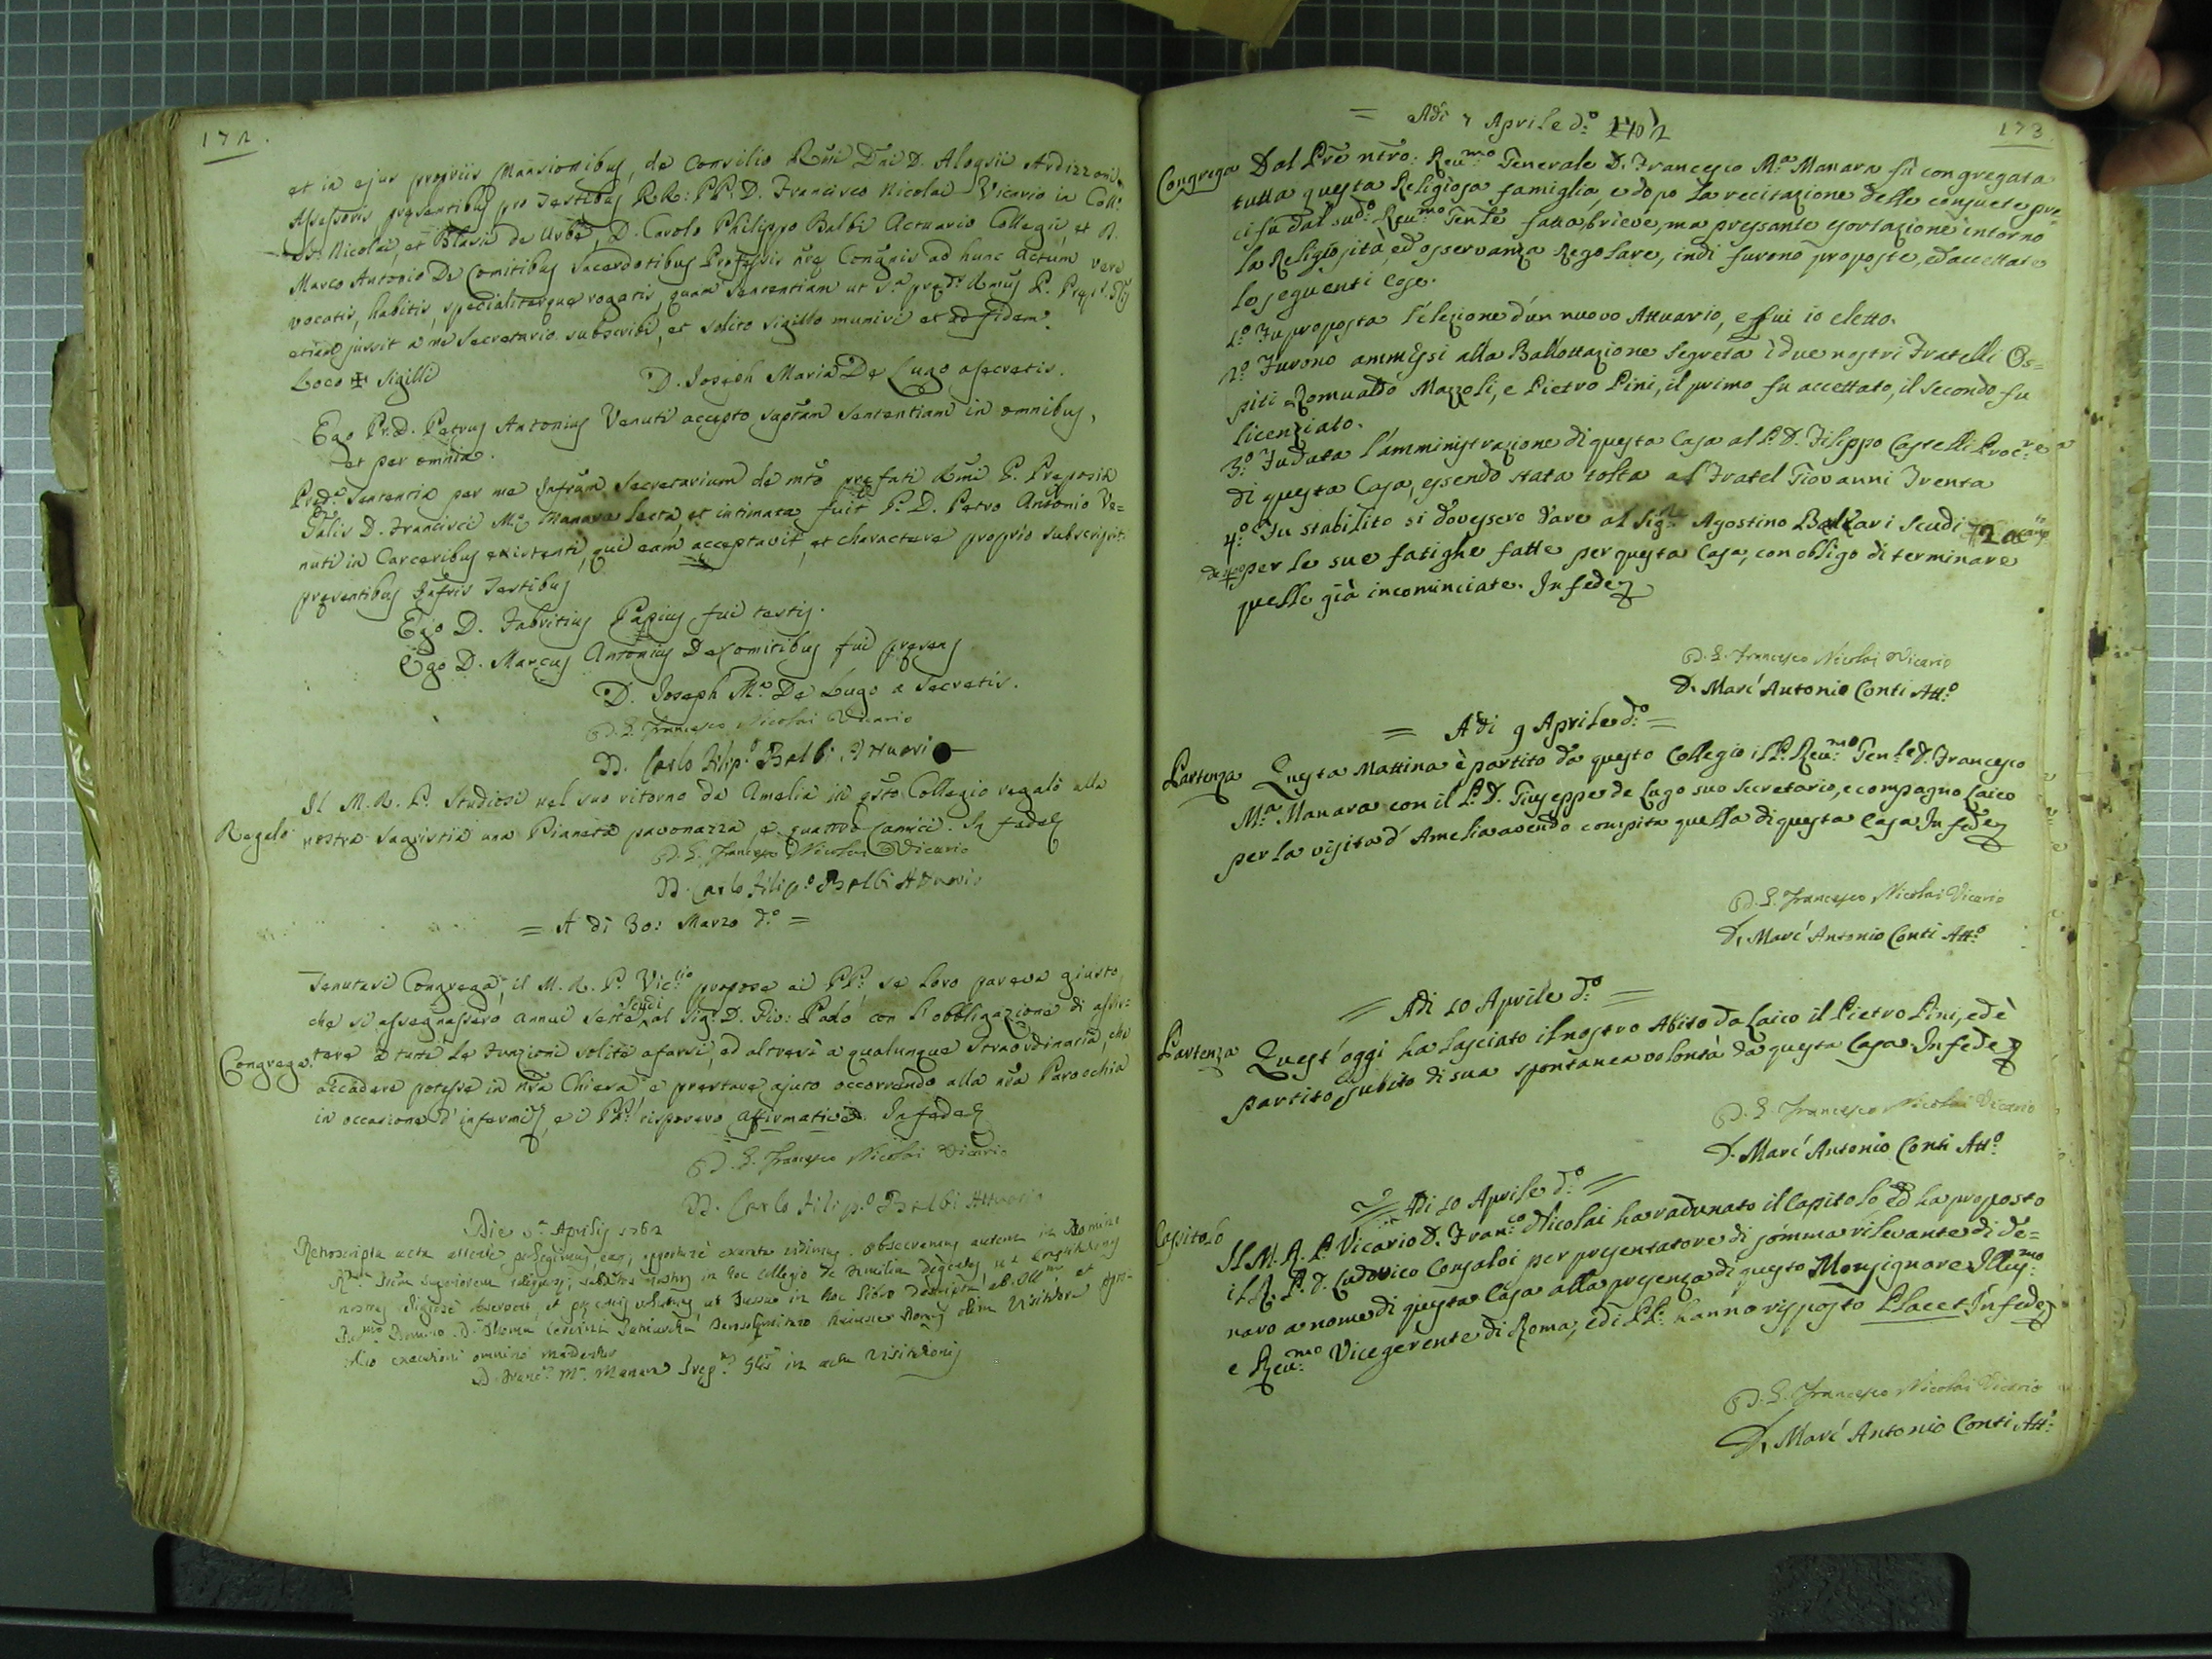 172.
et in ejus propriis Mansionibus, de Consilio Rmi Dni D. Aloysii Ardizzoni
Assessoris, presentibus pro Testibus RR: PP. D. Francisco Nicolai Vicario in Coll:
SS. Nicolai, et Blasii de Urbe, D. Carolo Philippo Balbi Actuario Collegii, et D.
Marco Antonio De Comitibus Sacerdotibus Professis nrę Congnis ad hunc Actum
vocatis, habitis, specialiterque rogatis, quam Sententiam ut sa. pręds. Rmus P. Prępts.
etiam jussit a me Secretario subscribi, et solito sigillo muniri et ad fidem.
Loco ✠ Sigilli D. Joseph Maria De Lugo a secretis.
Ego Pr. D. Petrus Antonius Venuti accepto supram Sententiam in omnibus,
et per omnia.
Pręd.a Sententia per me Infrum Secretarium de mto pręfati Rmi P. Prępositi
Gñlis D. Francisci Ma. Manara lecta, et intimata fuit P. D. Petro Antonio Ve=
nuti in Carceribus existenti, qui eam acceptavit, et charactere proprio subscripsit
pręsentibus Infris Testibus
Ego D. Fabritius Papius fui testis.
Ego D. Marcus Antonius De Comitibus fui pręsens
D. Joseph Ma. De Lugo a Secretis.
D. Francesco Nicolai Vicario
D. Carlo Filipo. Balbi Attuario
Il M. R. P. Studiosi nel suo ritorno da Amelia in qsto Collegio regalò alla
Regalo nostra Sagristia una Pianeta pavonazza e quattro Camici. In fede
D. Francesco Nicolai Vicario
D. Carlo Filipo. Balbi Attuario
= A dì 30: Marzo d.o =
Tenutasi Congrega, il M. R. P. Vic:rio propose ai PP: se loro pareva giusto,
che si assegnassero annui Sette scudi al Sig. D. Gio: Paolo con l'obbligazione di assis=
Congrega. tere a tutte le Funzioni solite a farsi, ed altresì a qualunque straordinaria, che
accadere potesse in nra Chiesa e prestare ajuto occorrendo alla nra Parocchia
in occasione d'infermi, e i PP: risposero affirmative. In fede
D. Francesco Nicolai Vicario
D. Carlo Filipo. Balbi Attuario
Die Aprilis 1762
Retroscripta acta
in hoc Collegio de Familia degentes
in hoc libro
executioni omnino
D. Franc. Ma. Manara in actu Visitationis
173.
= Adì 7 Aprile d:o 1762
Congrega Dal Pre ntro: Reu:mo Generale D. Francesco M.a Manara fù congregata
tutta questa Religiosa famiglia, e dopo la recitazione delle consuete pre=
ci fu dal sud:o Reu:mo Gen:le fatta brieve, ma pressante esortazione intorno
la Religiosità, ed osservanza Regolare, indi furono proposte, ed accettate
le seguenti Cose.
1:o Fu proposta l'elezione d'un nuovo Attuario, e fui io eletto.
2:o Furono ammessi alla Ballottazione Segreta i due nostri Fratelli Os=
piti Romualdo Mazzoli, e Pietro Pini, il primo fu accettato, il secondo fu
licenziato.
3:o Fu data l'amministrazione di questa Casa al P. D. Filippo Castelli Proc:re
di questa Casa, essendo stata tolta al Fratel Giovanni Trenta
4:o Fu stabilito si dovessero dare al Sig:re Agostino Scudi 72
per le sue fatighe fatte per questa Casa, con obbligo di terminare
quelle già incominciate. In fede
D. Francesco Nicolai Vicario
D. Marc' Antonio Conti Att:o
= Adi 9 Aprile d:o =
Partenza Questa Mattina è partito da questo Collegio il P. Reu:mo Gen:le D. Francesco
M:a Manara con il P. D. Giuseppe de Lugo suo Secretario, e compagno Laico
per la visita d'Amelia avendo compita quella di questa Casa In fede
D. Francesco Nicolai Vicario
D. Marc' Antonio Conti Att:o
= Adi 10 Aprile d:o =
Partenza Quest' oggi ha lasciato il nostro Abito da Laico il Pietro Pini, ed è
partito subito di sua spontanea volontà da questa Casa. In fede
D. Francesco Nicolai Vicario
D. Marc' Antonio Conti Att:o
= Adi 10 Aprile d:o =
Capitolo Il M. R. P. Vicario D. Fran:co Nicolai ha radunato il Capitolo, ed ha proposto
il R. P. D. Ludovico Consaloi per presentatore di somma rilevante di de=
naro a nome di questa Casa alla presenza di questo Monsignore Illus:mo
e Reu:mo Vicegerente di Roma, ed i PP: hanno risposto Placet In fede
D. Francesco Nicolai Vicario
D. Marc' Antonio Conti Att:o